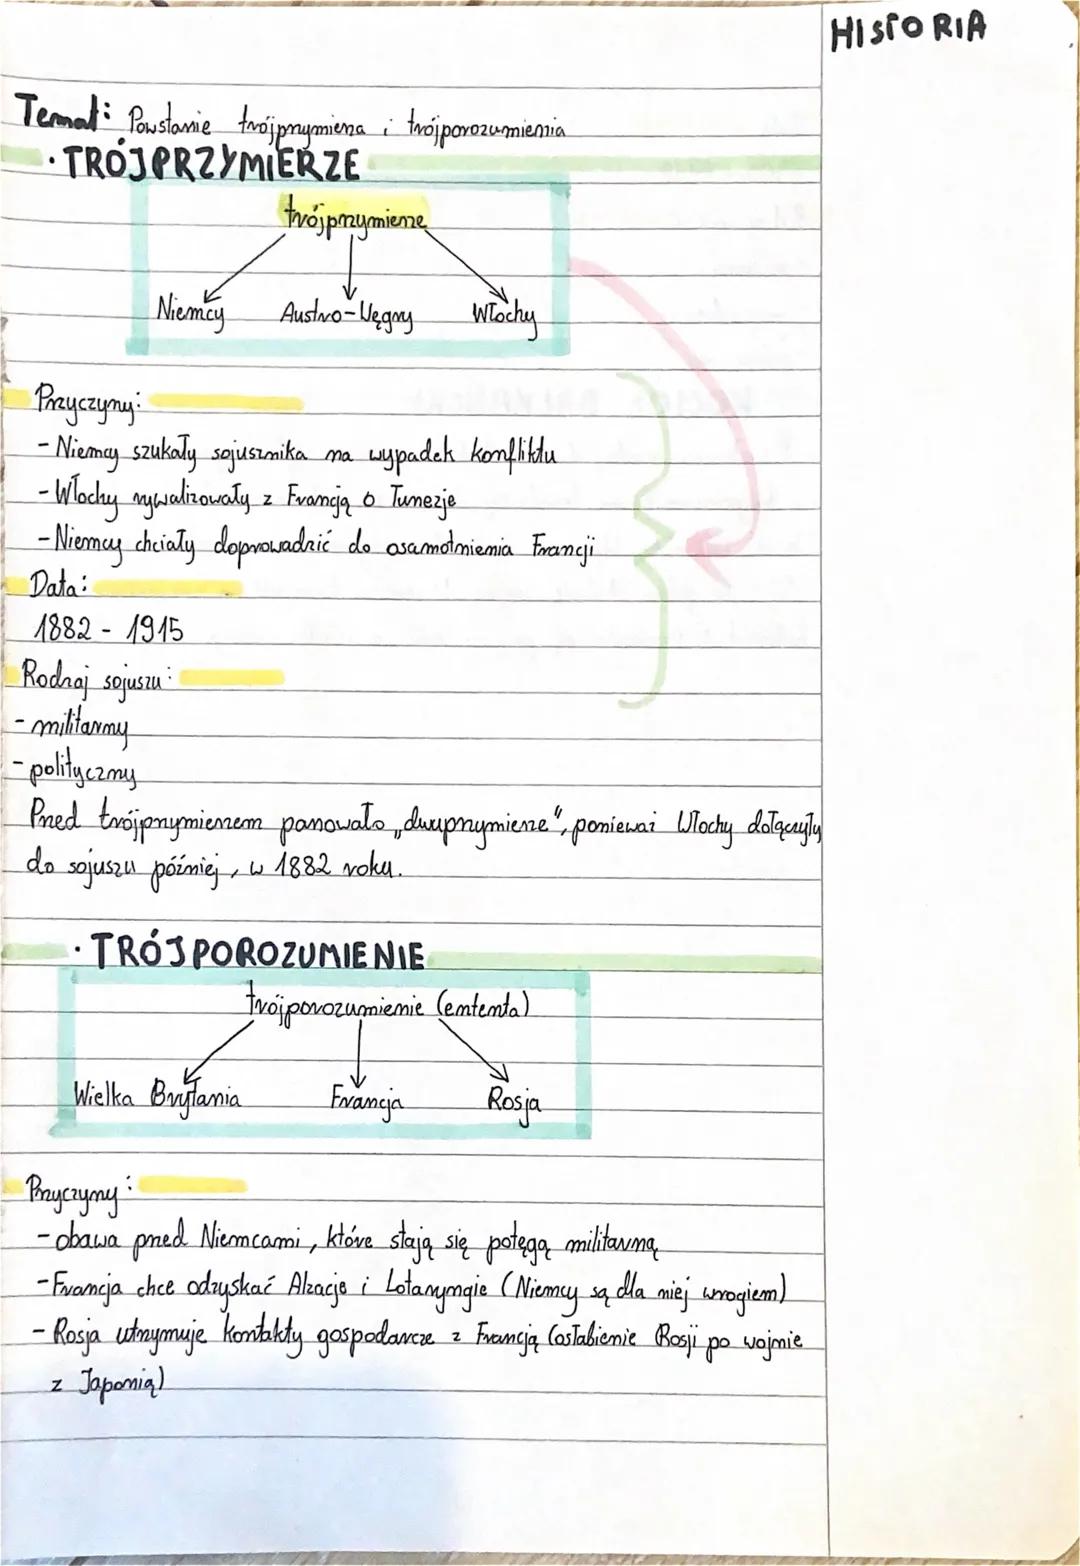 HISTORIA
Temat: Powstanie trójprzymierza i trójporozumienia
• TRÓJPRZYMIERZE
trójprzymierze
Niemcy Austro-Węgry Włochy
Przyczyny:
- Niemcy szukały sojusznika na wypadek konfliktu
- Włochy rywalizowały z Francją o Tunezje
- Niemcy chciały doprowadzić do osamotnienia Francji
Data:
1882 - 1915
Rodzaj sojuszu:
- militarny
- polityczny
Przed trójprzymierzem panowało „dwuprzymierze", ponieważ Włochy dołączyły
do sojuszu później, w 1882 roku.
• TRÓJPOROZUMIENIE
trójporozumienie (ententa)
Wielka Brytania Francja Rosja
Przyczyny:
- obawa przed Niemcami, które stają się potęgą militarną
- Francja chce odzyskać Alzacje i Lotaryngie (Niemcy są dla niej wrogiem)
- Rosja utrzymuje kontakty gospodarcze z Francją (osłabienie Rosji po wojnie
z Japonią)